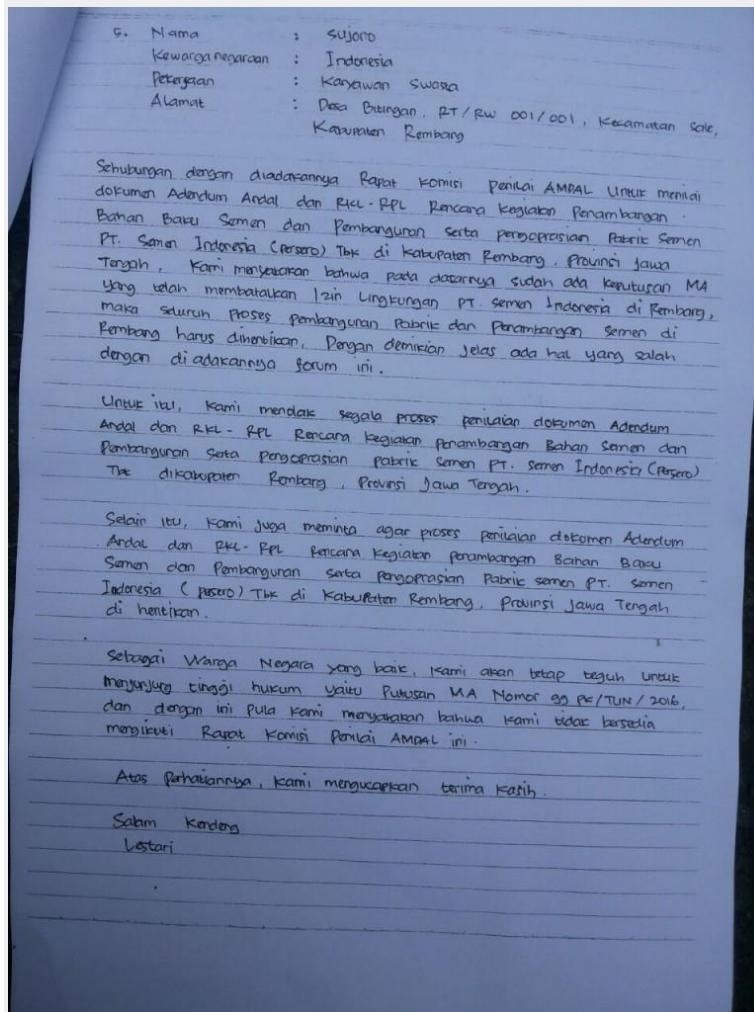 5. Nama : Sujono
Kewarganegaraan : Indonesia
Pekerjaan : Karyawan Swasta
Alamat : Desa Bitingan, RT/RW 001/001, Kecamatan Sale,
Kabupaten Rembang
Sehubungan dengan diadakannya Rapat Komisi Penilai AMDAL Untuk menilai
dokumen Adendum Andal dan RKL-RPL Rencana Kegiatan Penambangan
Bahan Baku Semen dan Pembangunan serta pengoprasian Pabrik Semen
PT. Semen Indonesia (Persero) Tbk di Kabupaten Rembang, Provinsi Jawa
Tengah, Kami menyatakan bahwa pada dasarnya sudah ada keputusan MA
yang telah membatalkan Izin Lingkungan PT. Semen Indonesia di Rembang,
maka seluruh proses pembangunan Pabrik dan Penambangan Semen di
Rembang harus dihentikan. Dengan demikian jelas ada hal yang salah
dengan di adakannya forum ini.
Untuk itu, Kami menolak segala proses penilaian dokumen Adendum
Andal dan RKL-RPL Rencana Kegiatan penambangan Bahan Semen dan
Pembangunan Serta pengoprasian pabrik Semen PT. Semen Indonesia (Persero)
Tbk dikabupaten Rembang, Provinsi Jawa Tengah.
Selain itu, Kami juga meminta agar proses penilaian dokumen Adendum
Andal dan RKL-RPL Rencana Kegiatan penambangan Bahan Baku
Semen dan Pembangunan serta pengoprasian Pabrik semen PT. Semen
Indonesia (persero) Tbk di Kabupaten Rembang, Provinsi Jawa Tengah
di hentikan.
Sebagai Warga Negara yang baik, Kami akan tetap teguh untuk
menjunjung tinggi hukum yaitu Putusan MA Nomor 99 PK/TUN/2016,
dan dengan ini pula kami menyatakan bahwa kami tidak bersedia
mengikuti Rapat Komisi Penilai AMDAL ini.
Atas Perhatiannya, Kami mengucapkan terima Kasih.
Salam Kendeng
Lestari